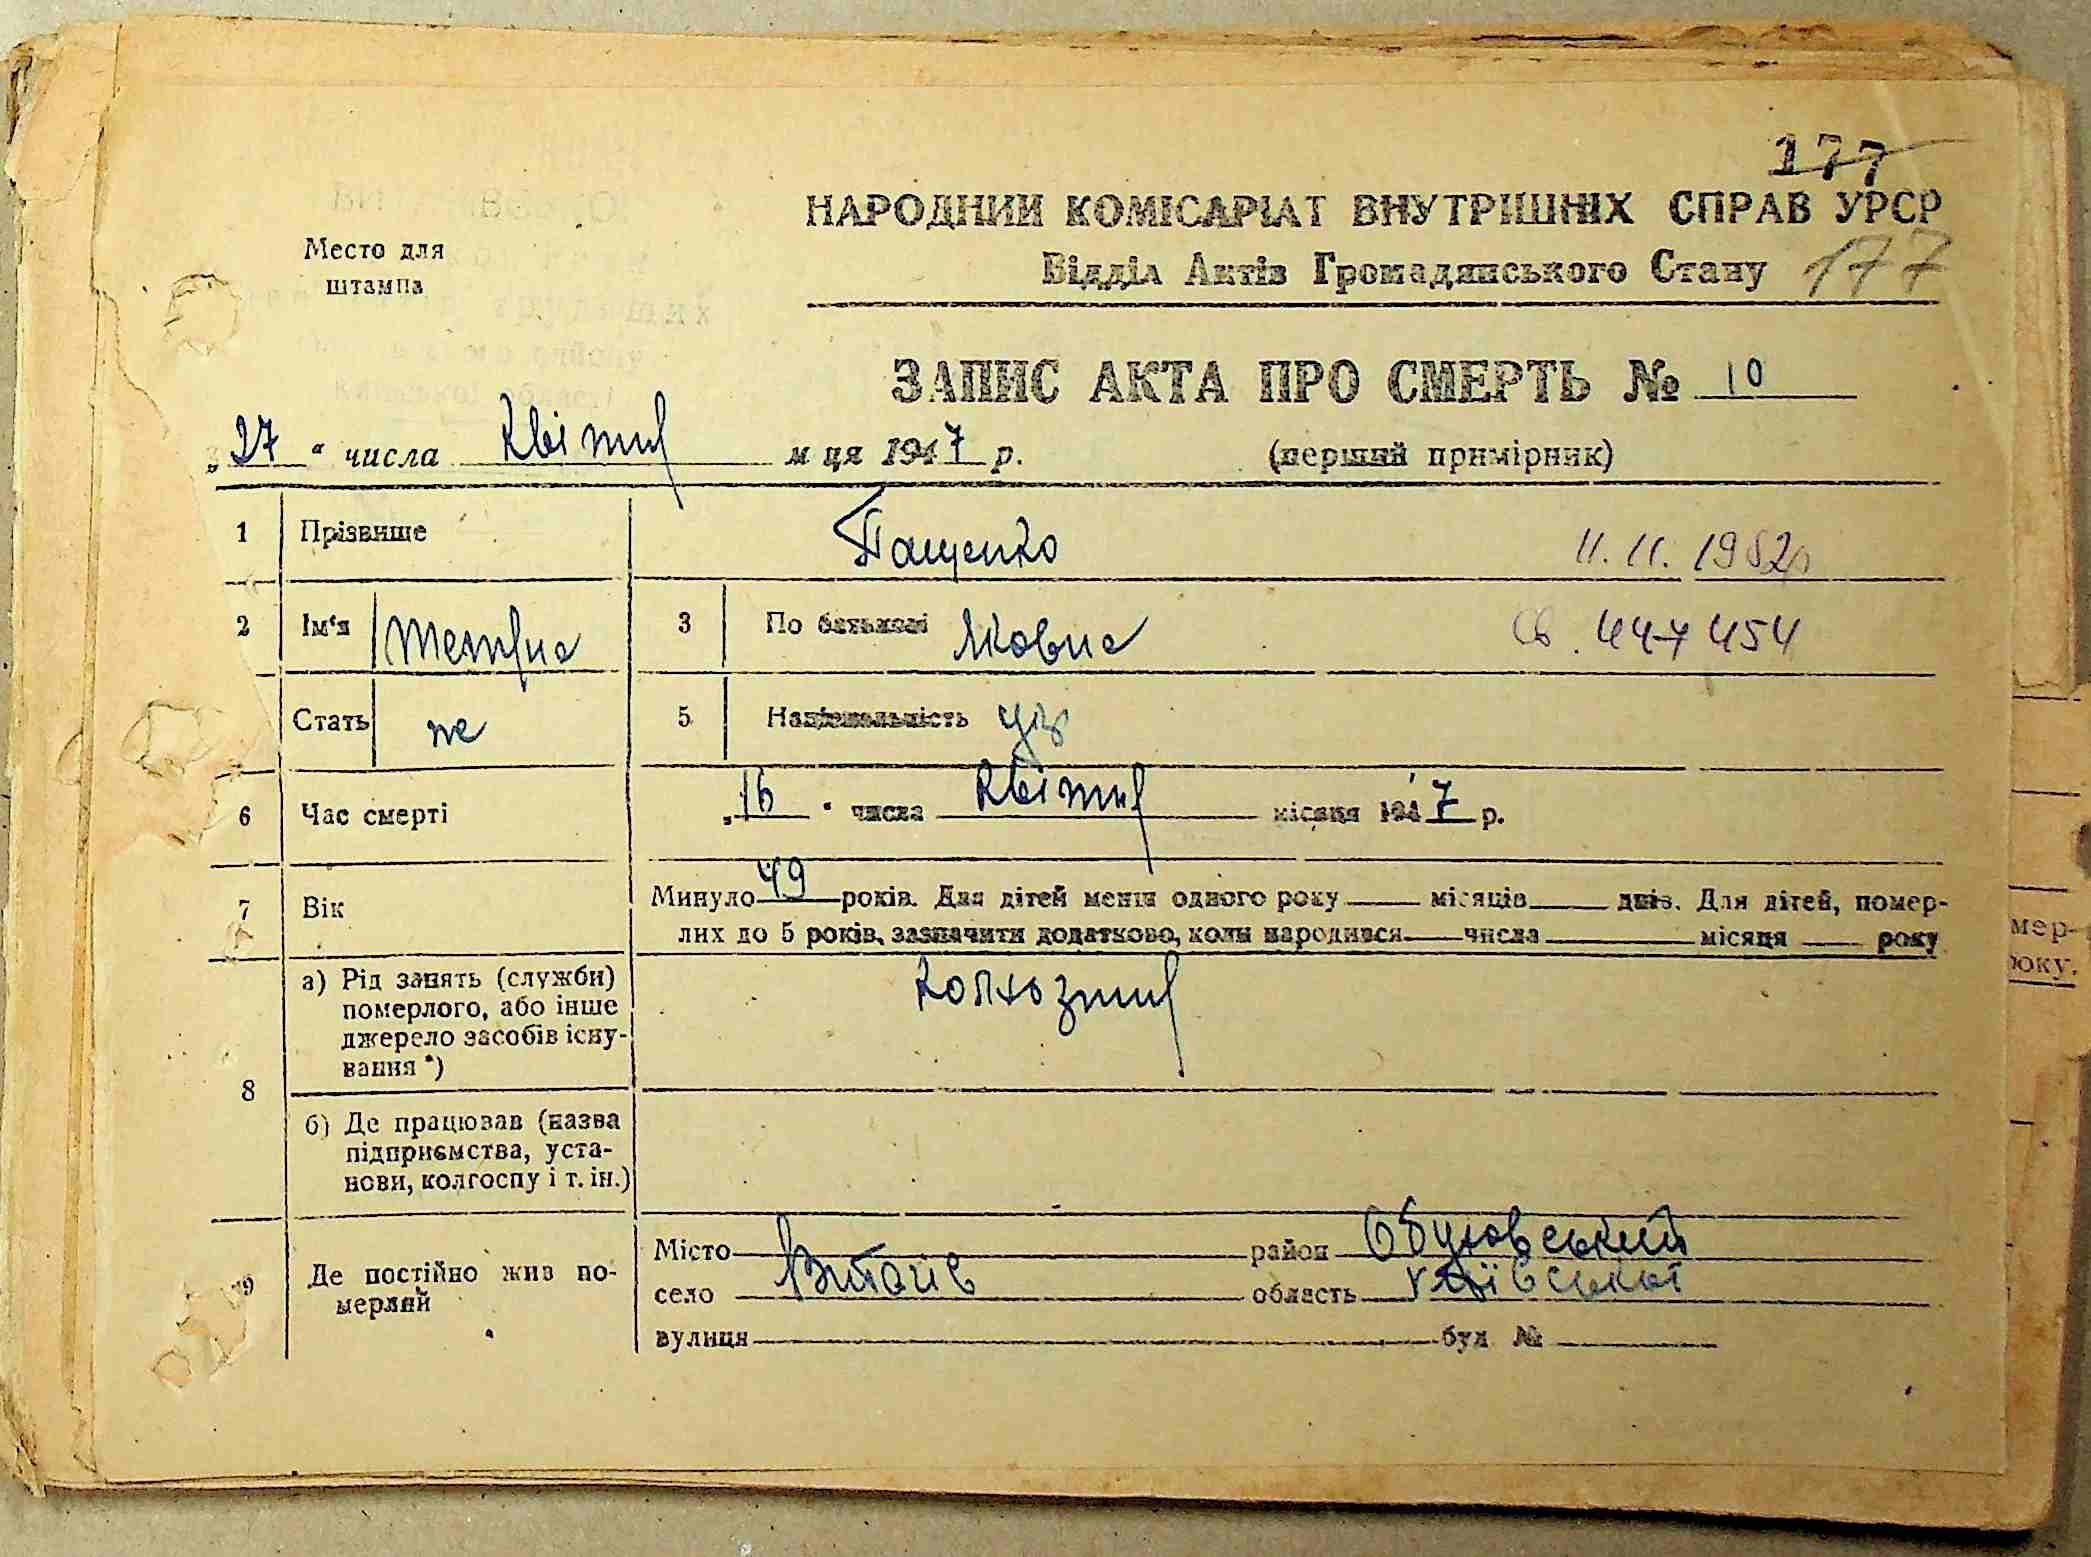 177
НАРОДНИЙ КОМІСАРІАТ ВНУТРІШНІХ СПРАВ УРСР
Место для
штампа
Відділ Актів Громадянського Стану 177
ЗАПИС АКТА ПРО СМЕРТЬ № 10
„27“ числа Квітня м ця 1947 р. (перший примірник)
1 Прізвище Пащенко 11.11.1952р
2 Ім'я Тетяна 3 По батькові Яковна Св. 447454
Стать же 5 Національність укр
6 Час смерті „16“ числа Квітня місяця 1947 р.
7 Вік Минуло 49 років. Для дітей менш одного року місяців днів. Для дітей, помер-
лих до 5 років, зазначити додатково, коли народився числа місяця року
8 а) Рід занять (служби) Колхозния
померлого, або інше
джерело засобів існу-
вання *)
б) Де працював (назва
підприємства, уста-
нови, колгоспу і т. ін.)
9 Де постійно жив по-
мерлий
Місто район Обуховський
село Витачів область Київської
вулиця буд №
мер-
року.